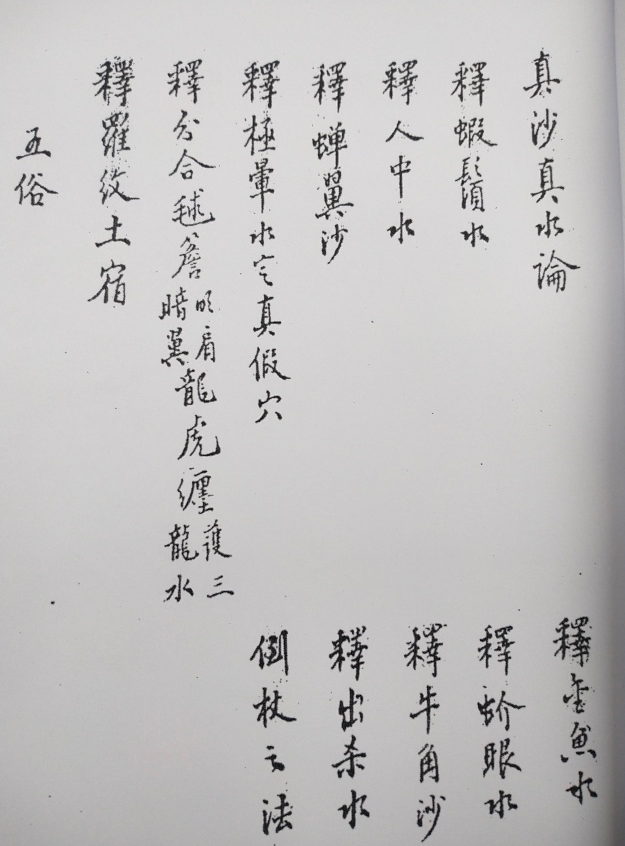 真沙真水論
釋金魚水
釋蝦鬚水
釋蚧眼水
釋人中水
釋牛角沙
釋蝉翼沙
釋出杀水
釋極暈水定真假穴
倒杖之法
釋分合毬簷明肩暗翼龍虎纒護三龍水
釋羅紋土宿
五俗